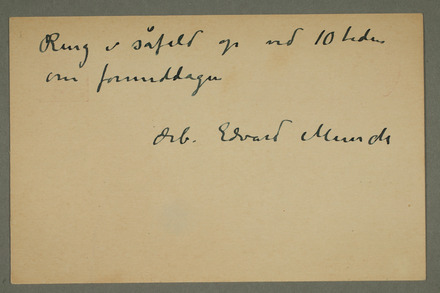 Ring v såfald op ved 10 tiden
om formiddagen
Ærb. Edvard Munch